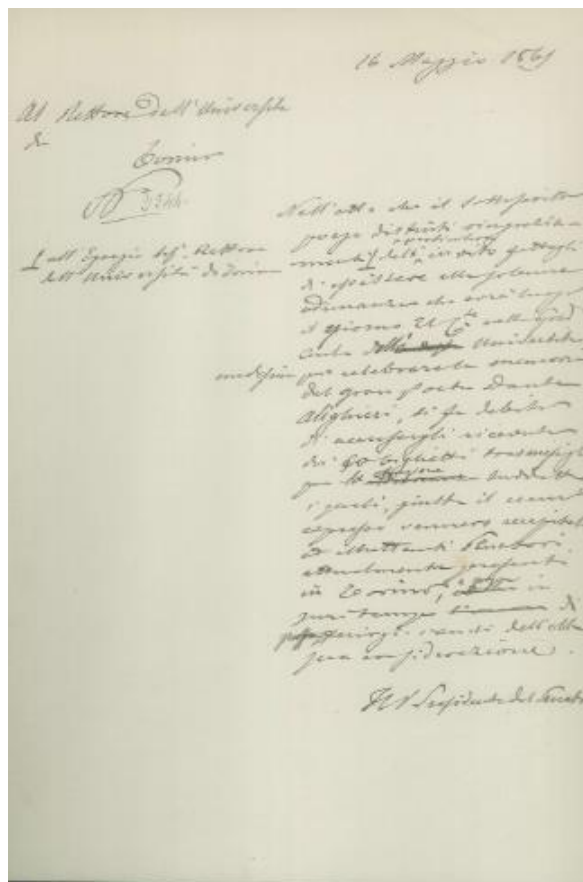 16 Maggio 1865
Al Rettore dell'Università
di
Torino
N 5344
all'Egregio Sig. Rettore
dell'Università di Torino
Nell'atto che il sottoscritto
porge distinti ringraziamenti
dell'invito
di assistere alla solenne
adunanza che avrà luogo
il giorno 21 Cte nella
Università
medesima per celebrare la memoria
del gran Poeta Dante
Alighieri, si fa debito
di accusargli ricevuta
dei 50 biglietti trasmessigli
per la suddetta
i quali, giusta il cenno
espresso vennero
Senatori
attualmente presenti
in Torino, in
pari tempo di
sensi dell'alta
sua considerazione.
Il Presidente del Senato